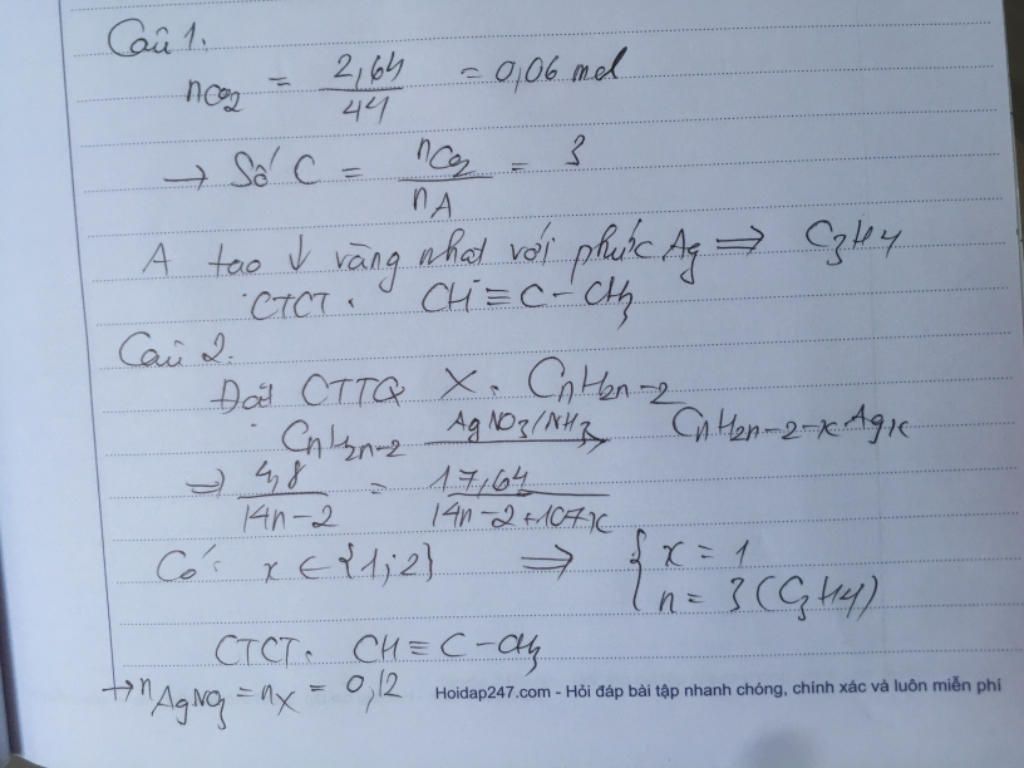 Câu 1.
nCO2 = 2,64/44 = 0,06 mol
→ Số C = nCO2/nA = 3
A tạo ↓ vàng nhạt với phức Ag ⇒ C3H4
CTCT: CH≡C-CH3
Câu 2.
Đặt CTTQ X: CnH2n-2
CnH2n-2 AgNO3/NH3→ CnH2n-2-xAgx
⇒ 4,8/14n-2 = 17,64/14n-2+107x
Có: x ∈ {1;2} ⇒ { x = 1
n = 3 (C3H4)
CTCT: CH≡C-CH3
→ nAgNO3 = nX = 0,12
Hoidap247.com - Hỏi đáp bài tập nhanh chóng, chính xác và luôn miễn phí